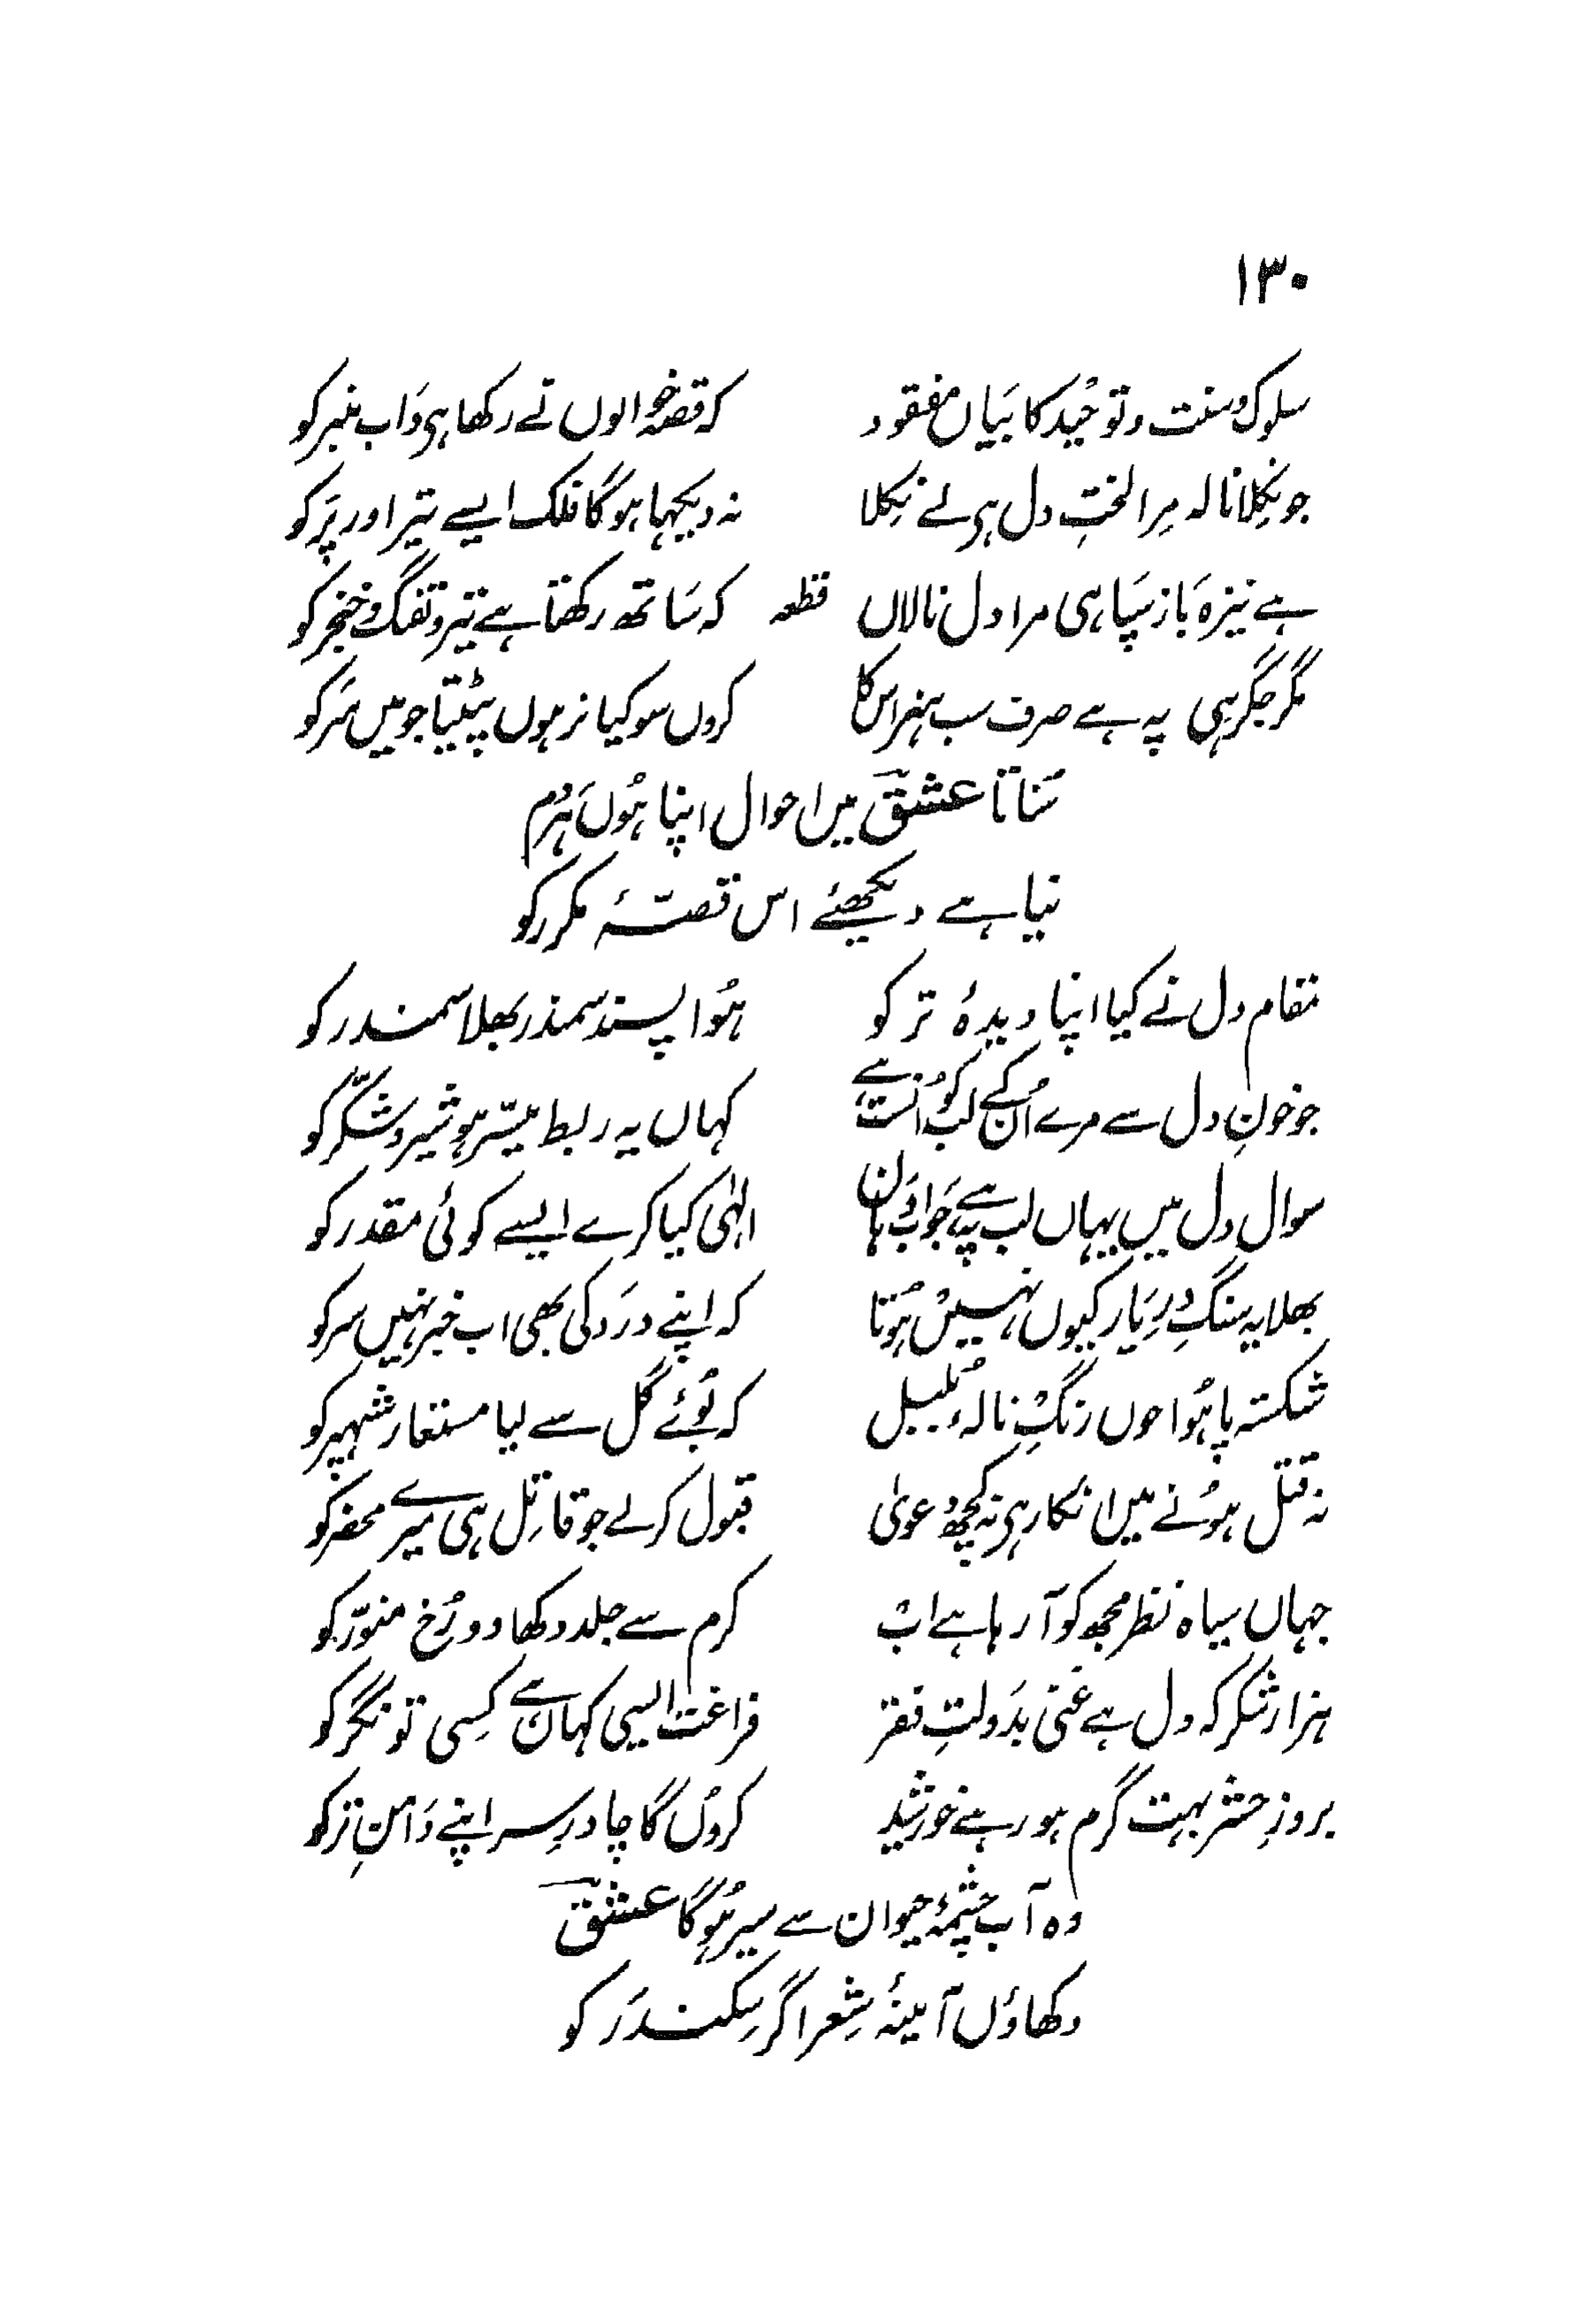 ۱۳۰
سلوک و سنت و توحید کا بَیاں مفقود کہ قصہ خوانوں نے رکھا ہی دَاب منبر کو
جو نِکلا نالہ مِرا لختِ دل ہی لے نِکلا نہ دیکہا ہوگا فلک ایسے تیر اور پَر کو
ہے نیزہ بَاز سَپاہی مرا دل نالاں قطعہ کہ سَاتھ رکھتا ہے تیر و تفنگ و خنجر کو
مگر جگر ہی پہ ہے صرف سب ہنر اس کا کروں سو کیا نہ ہوں پیٹتا جو میں سَر کو
سُناتا عشق میں احوال اپنا ہُوں ہَردم
نیا ہے دیکھئے اس قصّۂ مکرر کو
مقام دل نے کیا اپنا دیدۂ تر کو ہُوا پسند سمندر بھلا سمندر کو
جو خونِ دل سے مرے اُن کے لب کو اُنست ہے کہاں یہ ربط میسّر ہو شیر و شکّر کو
سوال دل میں یہاں لب پہ ہے جَواب وَہاں الٰہی کیا کرے ایسے کوئی مقدر کو
بھلا یہ سنگِ درِ یَار کیوں نہیں ہُوتا کہ اپنے درَد کی بھی اب خبر نہیں سر کو
شکستہ پا ہُوا جوں رنگِ نالۂ بُلبل کہ بُوئے گل سے لیا مستعار شہپر کو
نہ قتل ہونے میں انکار ہی نہ کچھ دعویٰ قبول کرلے جو قاتِل ہی میرے محضر کو
جہاں سیاہ نظر مجھ کو آرہا ہے اب کرم سے جلد دکھا دو رُخ منوّر کو
ہزار شکر کہ دل ہے غنی بدَولتِ فقر فراغت ایسی کہاں ہے کِسی تونگر کو
بروزِ حشر بہت گرم ہو رہے خورشید کروں گا چادرِ سر اپنے دَامنِ تر کو
وہ آب چشمۂ حیوان سے سیر ہُوگا عشق
دکھاؤں آئینۂ شِعر اگر سِکندَر کو